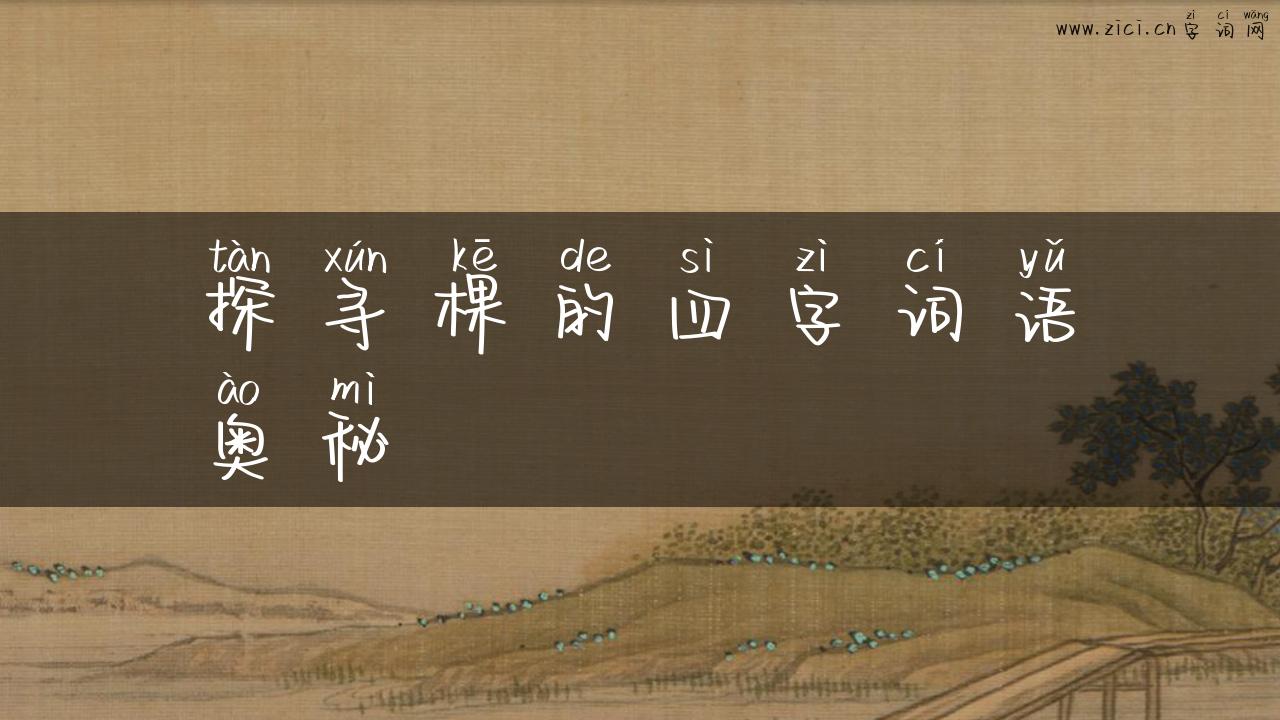 zì cí wǎng
www.zici.cn字词网
tàn xún kē de sì zì cí yǔ
探寻棵的四字词语
ào mì
奥秘